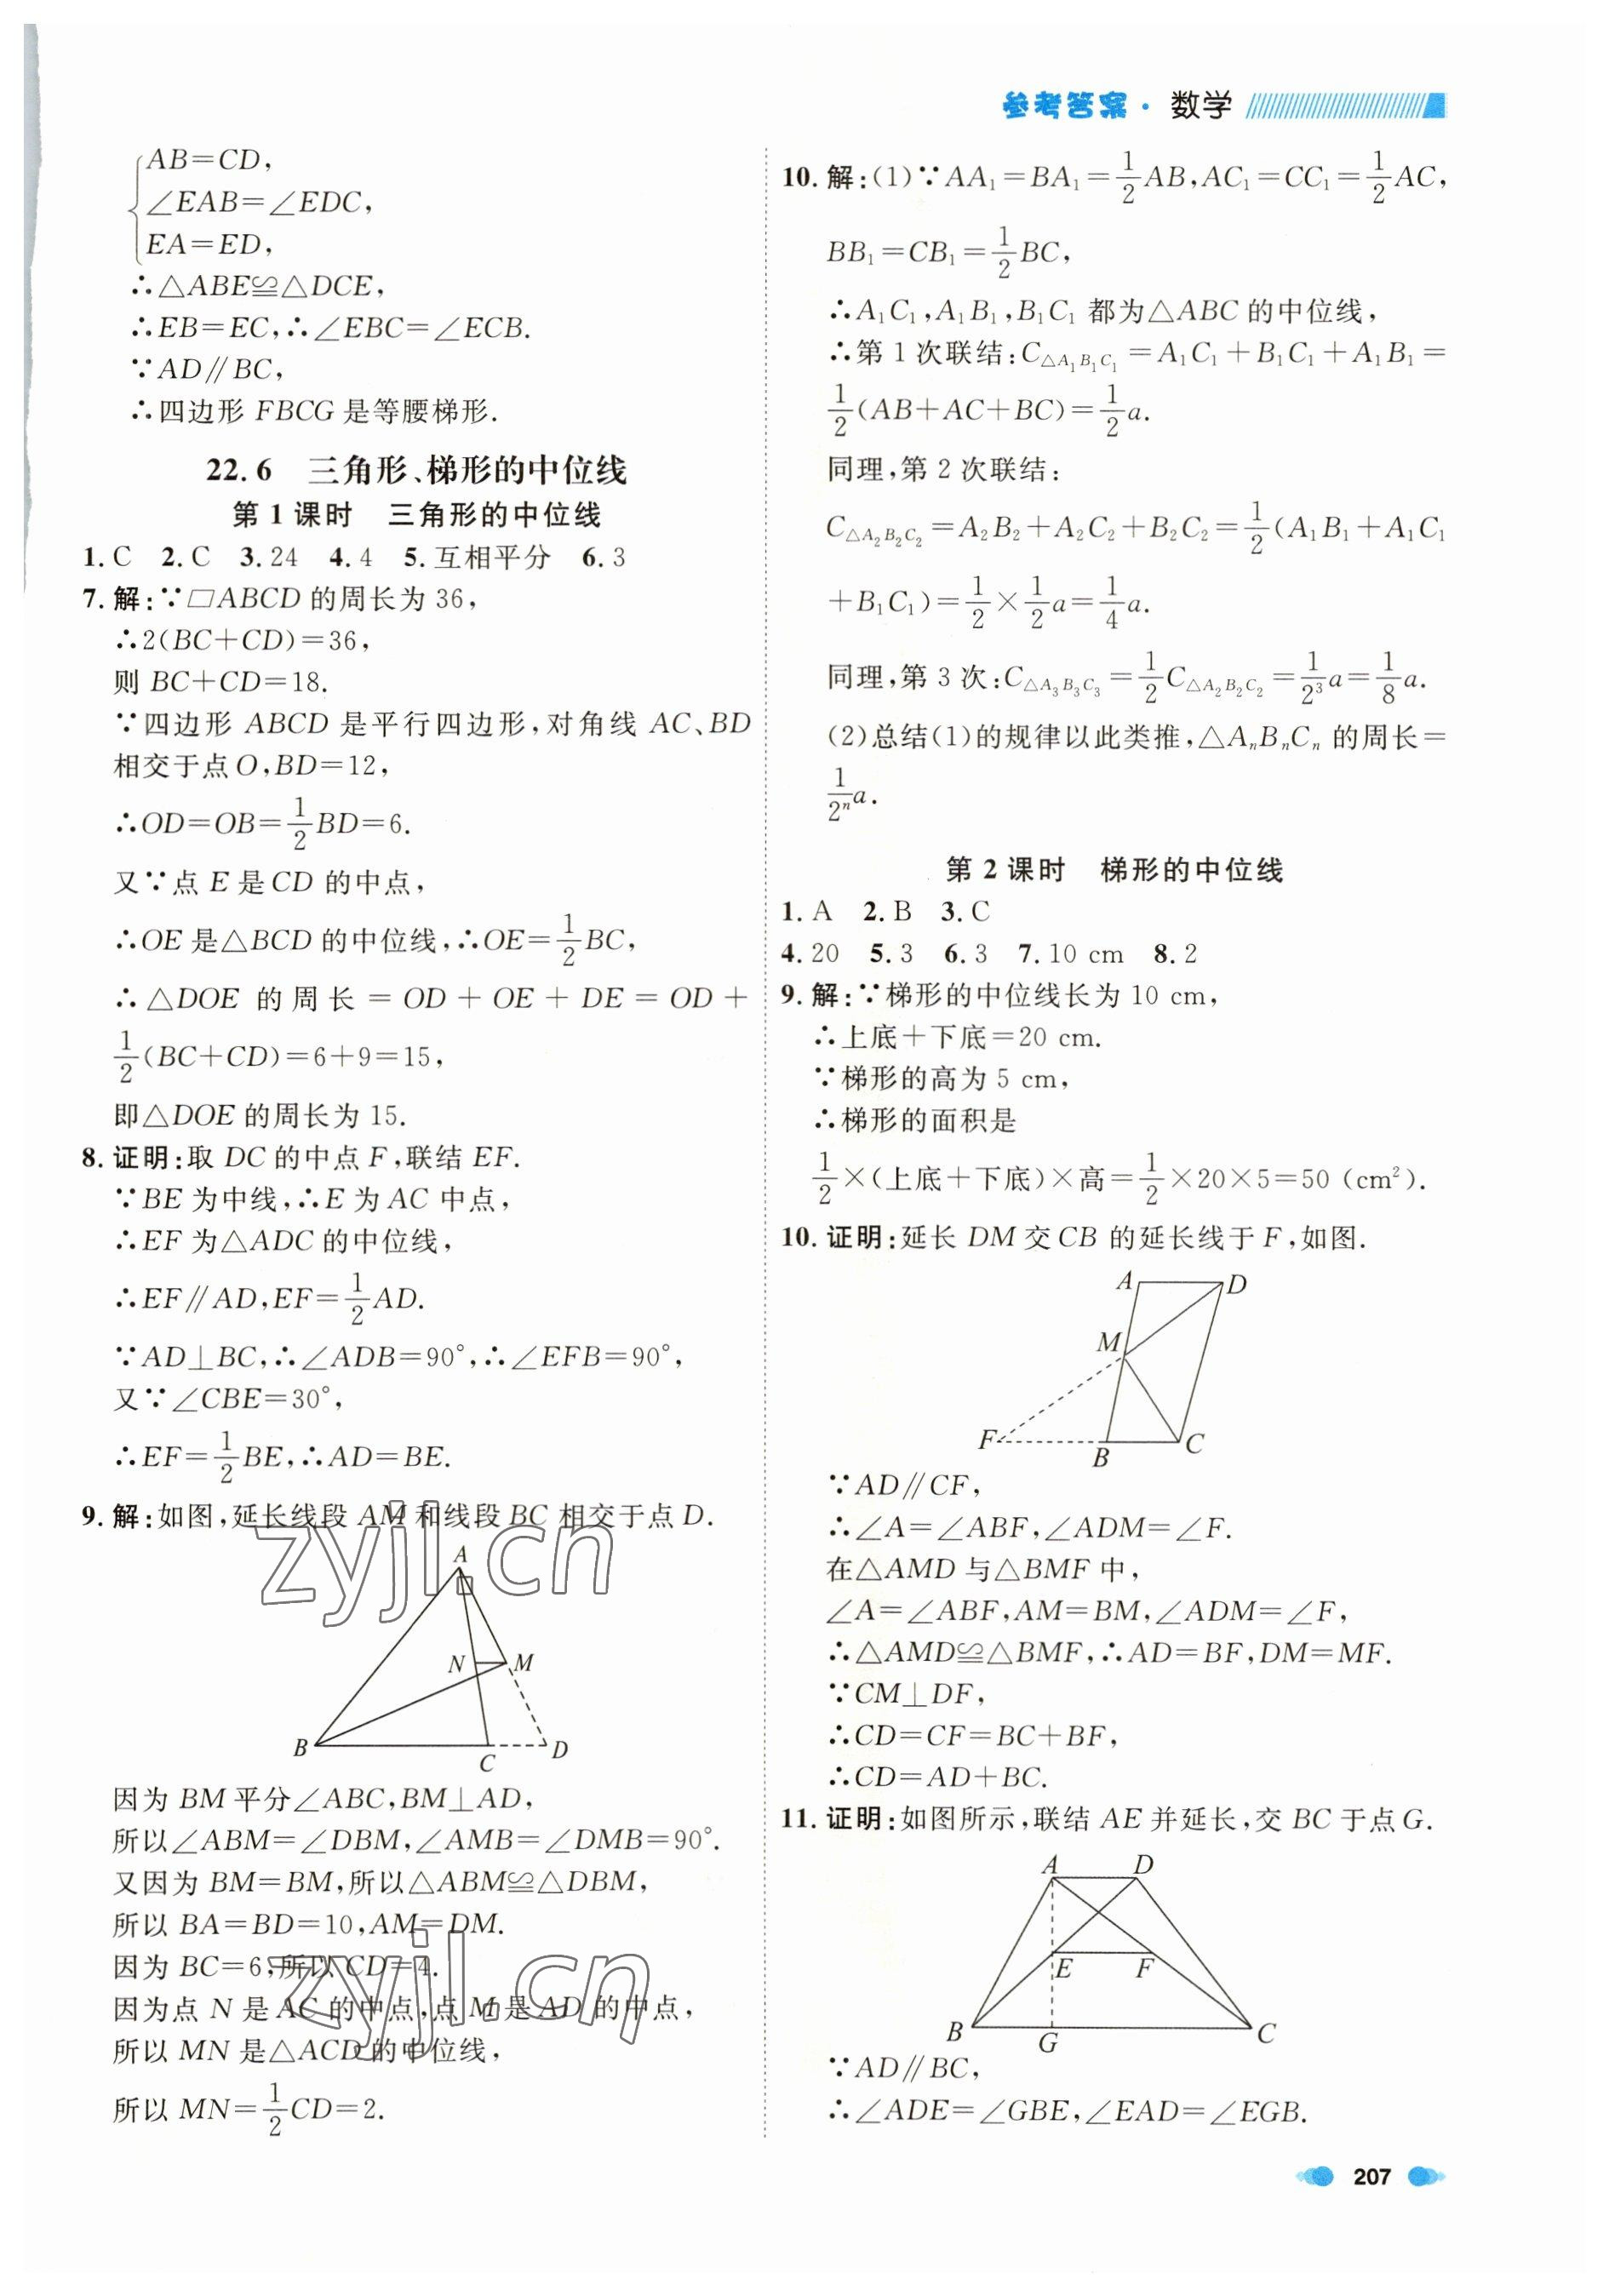 参考答案·数学
AB=CD,
∠EAB=∠EDC,
EA=ED,
∴△ABE≌△DCE,
∴EB=EC,∴∠EBC=∠ECB.
∵AD∥BC,
∴四边形 FBCG 是等腰梯形.
22.6 三角形、梯形的中位线
第 1 课时 三角形的中位线
1. C 2. C 3. 24 4. 4 5. 互相平分 6. 3
7. 解:∵□ABCD 的周长为 36,
∴2(BC+CD)=36,
则 BC+CD=18.
∵四边形 ABCD 是平行四边形,对角线 AC、BD
相交于点 O,BD=12,
∴OD=OB=1/2BD=6.
又∵点 E 是 CD 的中点,
∴OE 是△BCD 的中位线,∴OE=1/2BC,
∴△DOE 的周长=OD+OE+DE=OD+
1/2(BC+CD)=6+9=15,
即△DOE 的周长为 15.
8. 证明:取 DC 的中点 F,联结 EF.
∵BE 为中线,∴E 为 AC 中点,
∴EF 为△ADC 的中位线,
∴EF∥AD,EF=1/2AD.
∵AD⊥BC,∴∠ADB=90°,∴∠EFB=90°,
又∵∠CBE=30°,
∴EF=1/2BE,∴AD=BE.
9. 解:如图,延长线段 AM 和线段 BC 相交于点 D.
A
N M
B C D
因为 BM 平分∠ABC,BM⊥AD,
所以∠ABM=∠DBM,∠AMB=∠DMB=90°.
又因为 BM=BM,所以△ABM≌△DBM,
所以 BA=BD=10,AM=DM.
因为 BC=6,所以 CD=4.
因为点 N 是 AC 的中点,点 M 是 AD 的中点,
所以 MN 是△ACD 的中位线,
所以 MN=1/2CD=2.
zyjl.cn
zyjl.cn
10. 解:(1)∵AA₁=BA₁=1/2AB,AC₁=CC₁=1/2AC,
BB₁=CB₁=1/2BC,
∴A₁C₁,A₁B₁,B₁C₁ 都为△ABC 的中位线,
∴第 1 次联结:C△A₁B₁C₁=A₁C₁+B₁C₁+A₁B₁=
1/2(AB+AC+BC)=1/2a.
同理,第 2 次联结:
C△A₂B₂C₂=A₂B₂+A₂C₂+B₂C₂=1/2(A₁B₁+A₁C₁
+B₁C₁)=1/2×1/2a=1/4a.
同理,第 3 次:C△A₃B₃C₃=1/2C△A₂B₂C₂=1/2³a=1/8a.
(2)总结(1)的规律以此类推,△AₙBₙCₙ 的周长=
1/2ⁿa.
第 2 课时 梯形的中位线
1. A 2. B 3. C
4. 20 5. 3 6. 3 7. 10 cm 8. 2
9. 解:∵梯形的中位线长为 10 cm,
∴上底+下底=20 cm.
∵梯形的高为 5 cm,
∴梯形的面积是
1/2×(上底+下底)×高=1/2×20×5=50 (cm²).
10. 证明:延长 DM 交 CB 的延长线于 F,如图.
A D
M
F B C
∵AD∥CF,
∴∠A=∠ABF,∠ADM=∠F.
在△AMD 与△BMF 中,
∠A=∠ABF,AM=BM,∠ADM=∠F,
∴△AMD≌△BMF,∴AD=BF,DM=MF.
∵CM⊥DF,
∴CD=CF=BC+BF,
∴CD=AD+BC.
11. 证明:如图所示,联结 AE 并延长,交 BC 于点 G.
A D
E F
B G C
∵AD∥BC,
∴∠ADE=∠GBE,∠EAD=∠EGB.
207